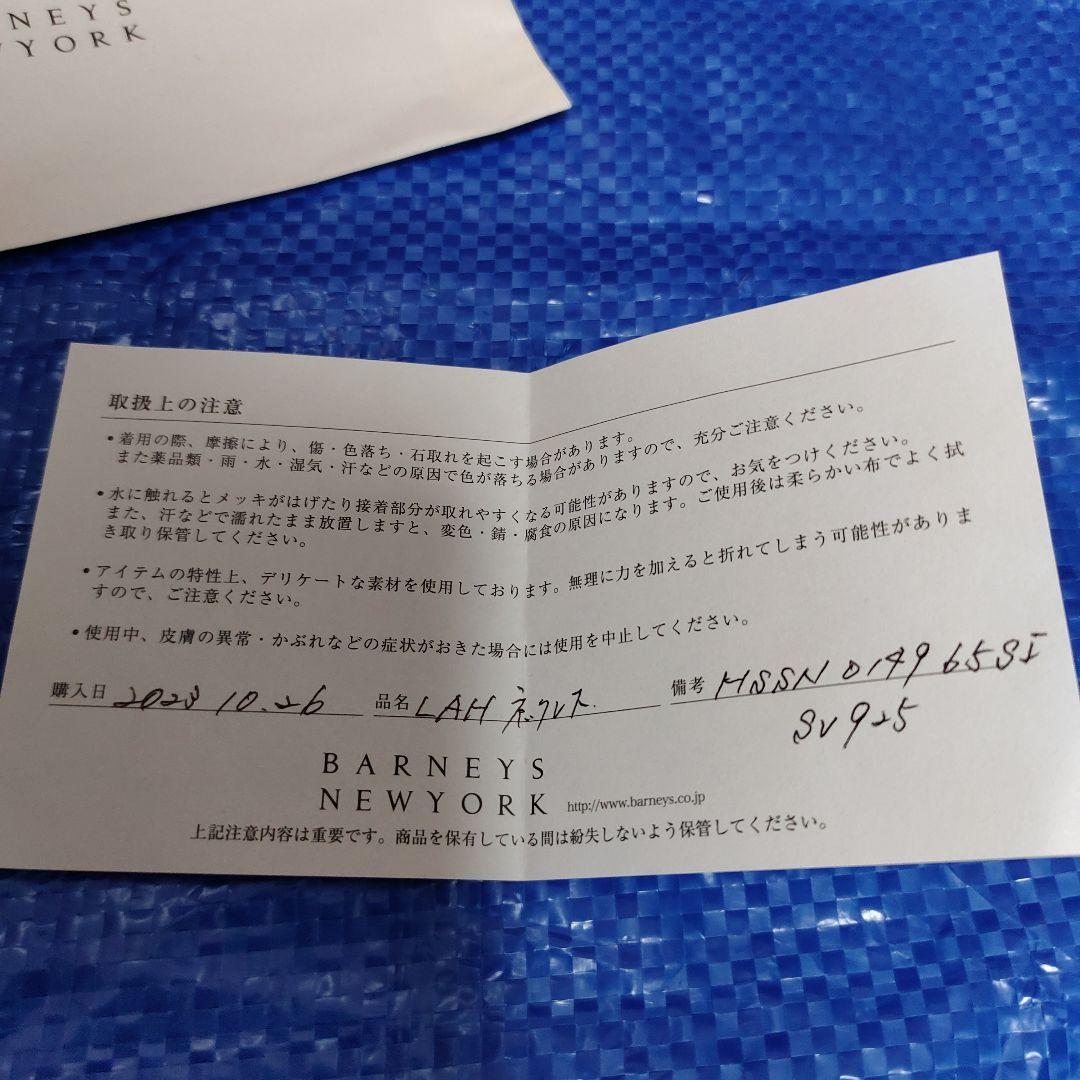 NEYS
YORK
取扱上の注意
•着用の際、摩擦により、傷・色落ち・石取れを起こす場合があります。
また薬品類・雨・水・湿気・汗などの原因で色が落ちる場合がありますので、充分ご注意ください。
•水に触れるとメッキがはげたり接着部分が取れやすくなる可能性がありますので、お気をつけください。
また、汗などで濡れたまま放置しますと、変色・錆・腐食の原因になります。ご使用後は柔らかい布でよく拭
き取り保管してください。
•アイテムの特性上、デリケートな素材を使用しております。無理に力を加えると折れてしまう可能性がありま
すので、ご注意ください。
•使用中、皮膚の異常・かぶれなどの症状がおきた場合には使用を中止してください。
購入日 2023 10.26 品名 LAH ネックレス. 備考 HSSN 0149 65SI
SV925
BARNEYS
NEWYORK http://www.barneys.co.jp
上記注意内容は重要です。商品を保有している間は紛失しないよう保管してください。